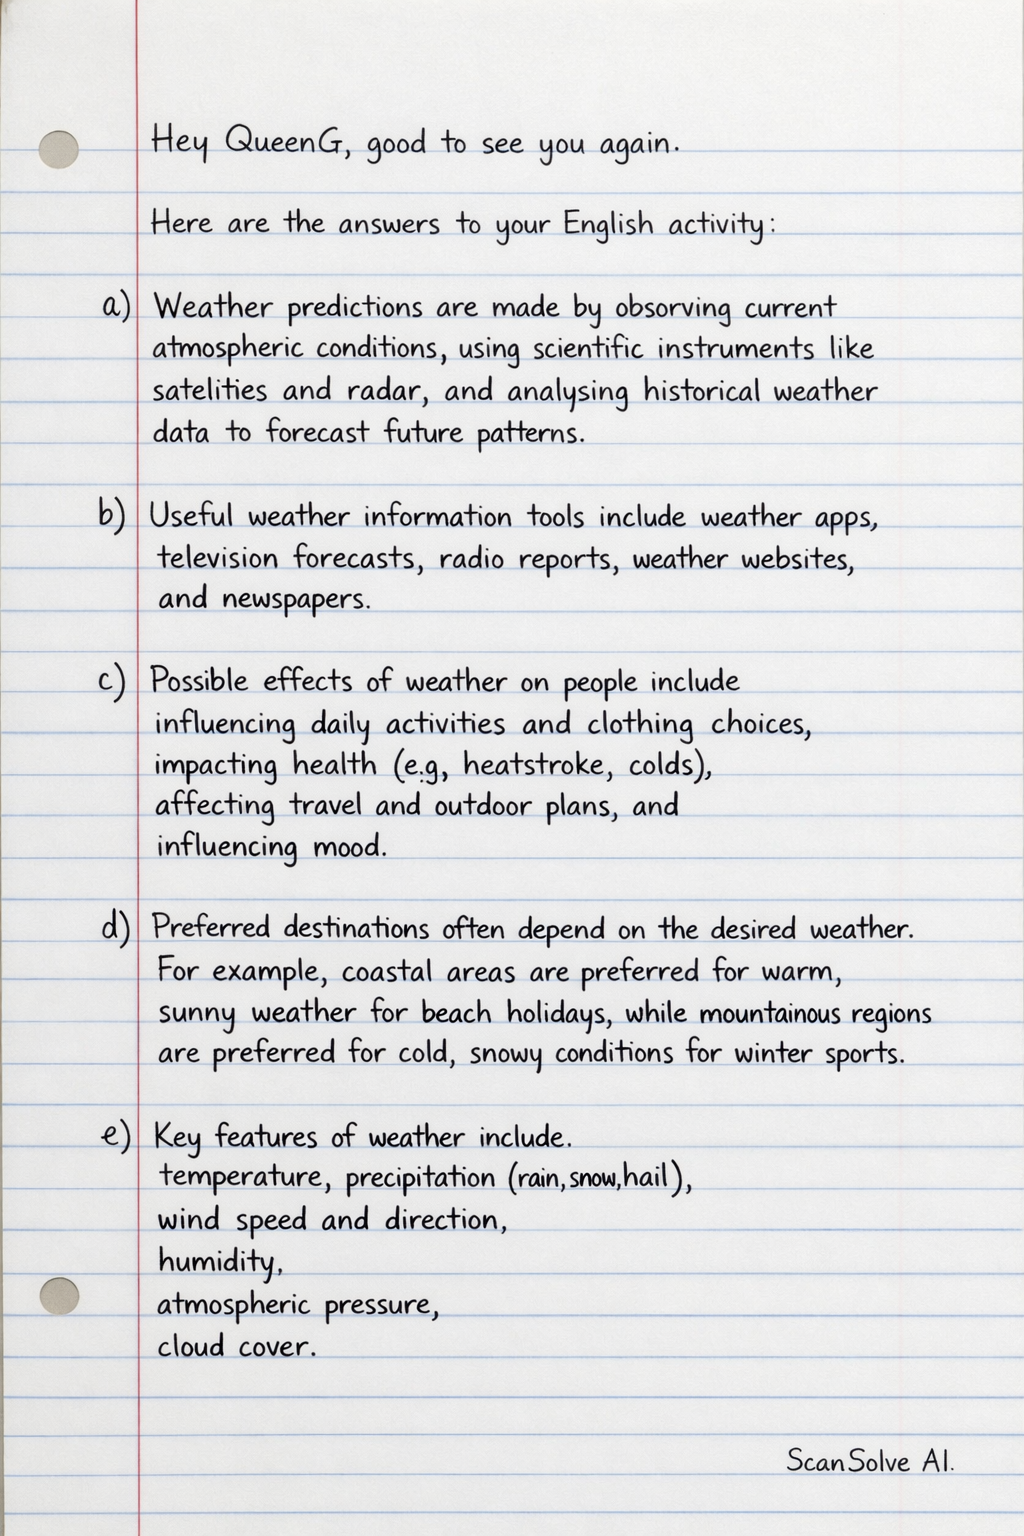 Hey QueenG, good to see you again.
Here are the answers to your English activity:
a) Weather predictions are made by obsorving current
atmospheric conditions, using scientific instruments like
satelities and radar, and analysing historical weather
data to forecast future patterns.
b) Useful weather information tools include weather apps,
television forecasts, radio reports, weather websites,
and newspapers.
c) Possible effects of weather on people include
influencing daily activities and clothing choices,
impacting health (e.g, heatstroke, colds),
affecting travel and outdoor plans, and
influencing mood.
d) Preferred destinations often depend on the desired weather.
For example, coastal areas are preferred for warm,
sunny weather for beach holidays, while mountainous regions
are preferred for cold, snowy conditions for winter sports.
e) Key features of weather include.
temperature, precipitation (rain, snow, hail),
wind speed and direction,
humidity,
atmospheric pressure,
cloud cover.
ScanSolve AI.